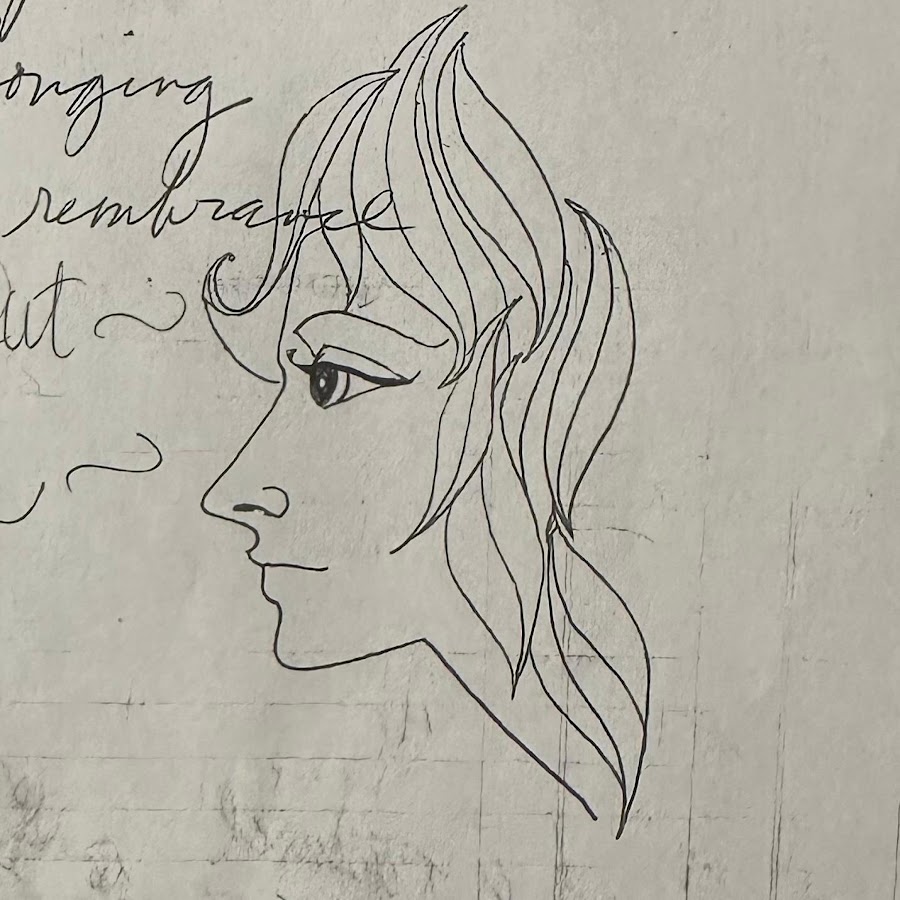 onging
rembrance
ut ~
~